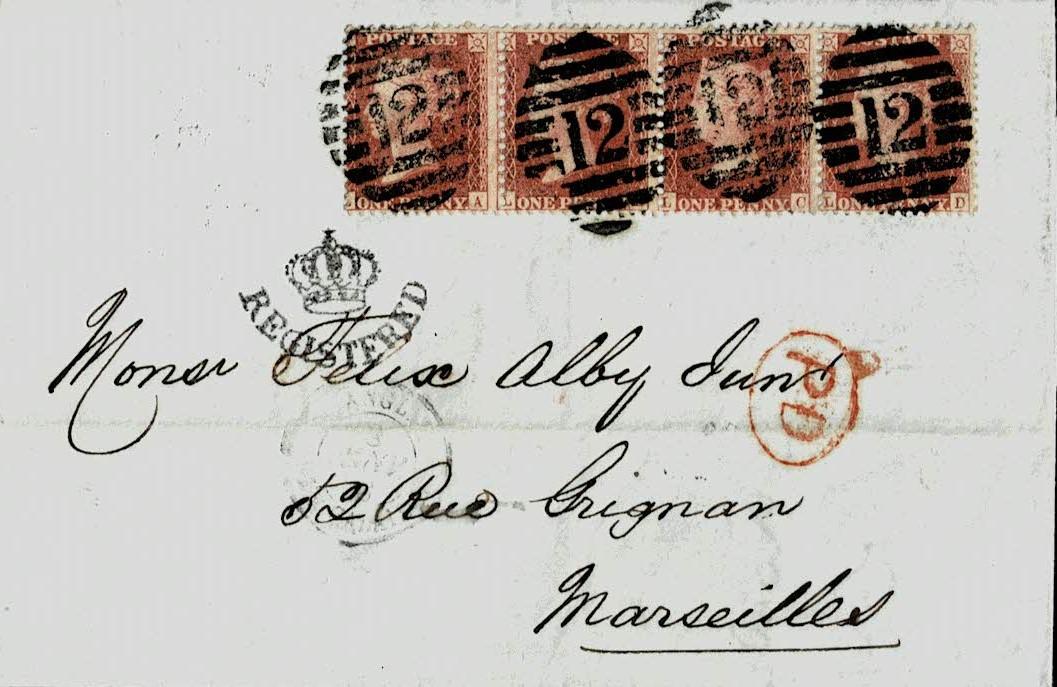 POSTAGE POSTAGE POSTAGE POSTAGE
12 12 12 12
ONE PENNY A L ONE PENNY L ONE PENNY C L ONE PENNY D
REGISTERED
Monsr Felix Alby Junr
PD
ANGL
52 Rue Grignan
Marseilles